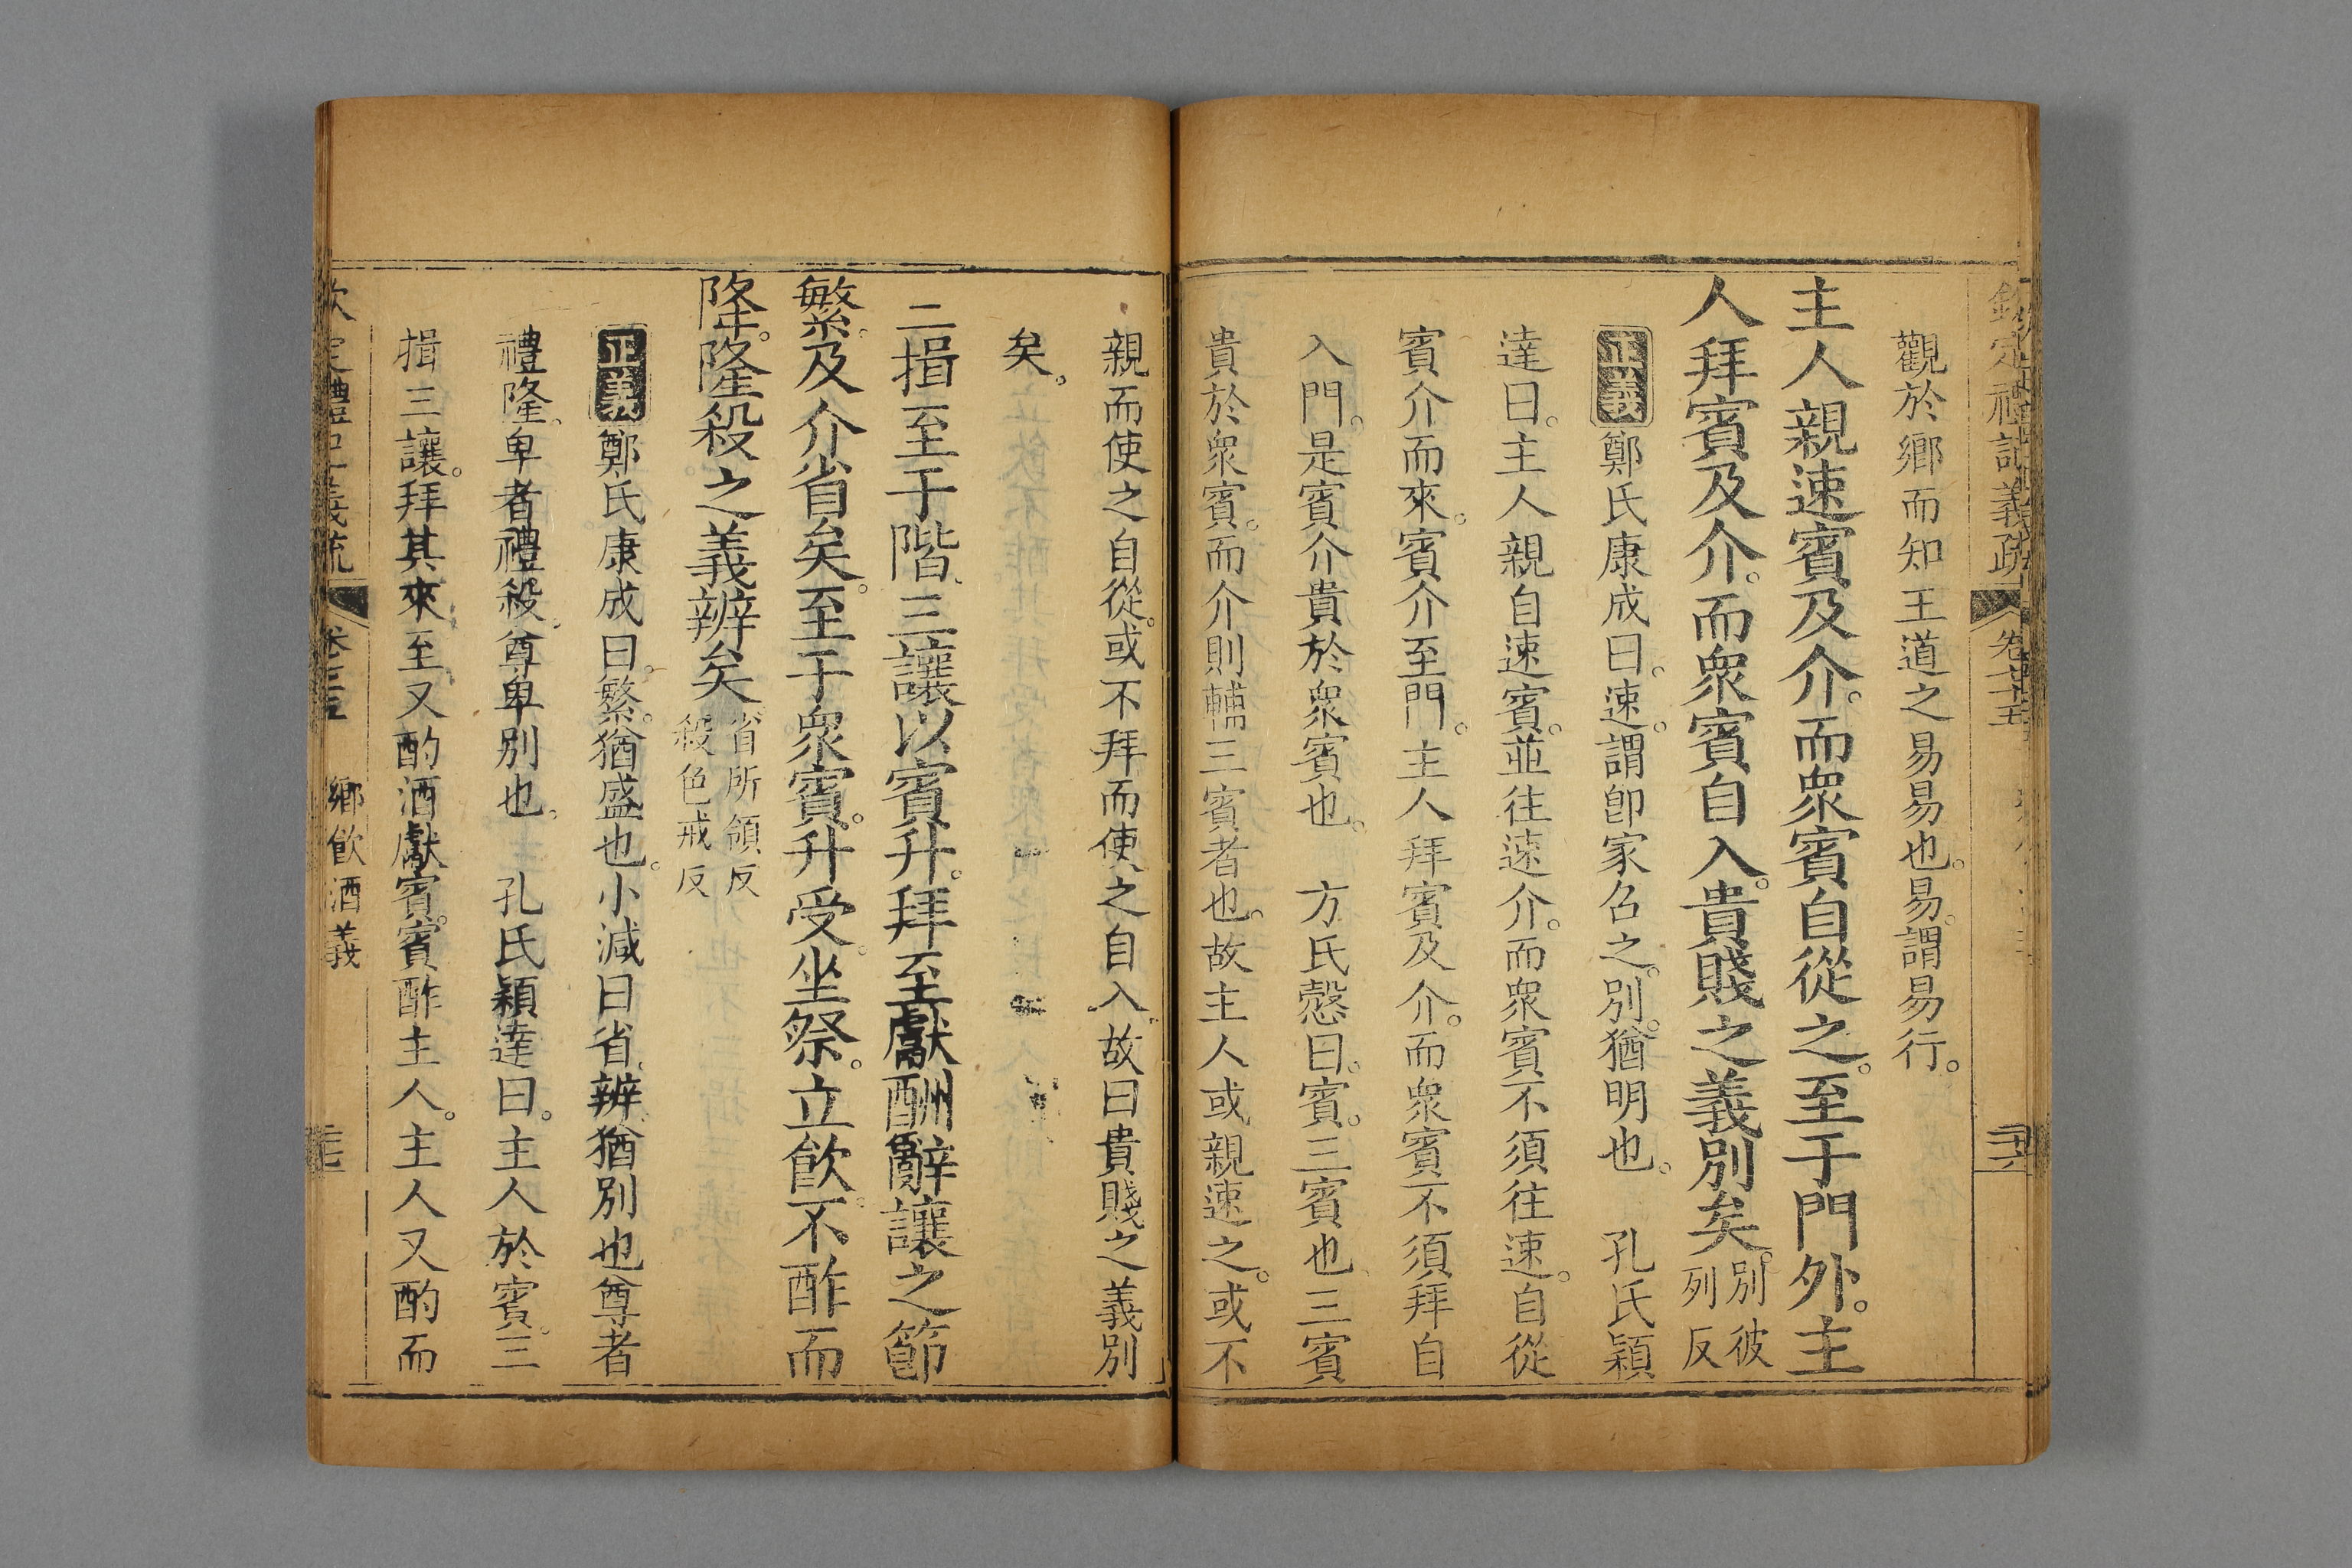 欽定禮記義疏 卷七十五 二十六
觀於鄉而知王道之易易也。易。謂易行。
主人親速賓及介。而眾賓自從之。至于門外。主
人拜賓及介。而眾賓自入。貴賤之義別矣。別彼列反
正義 鄭氏康成曰。速。謂卽家召之。別。猶明也。 孔氏穎
達曰。主人親自速賓。並往速介。而眾賓不須往速。自從
賓介而來。賓介至門。主人拜賓及介。而眾賓不須拜自
入門。是賓介貴於眾賓也。 方氏慤曰。賓。三賓也三賓
貴於眾賓。而介則輔三賓者也。故主人或親速之。或不
親而使之自從。或不拜而使之自入故曰貴賤之義別
矣。
三揖至于階。三讓以賓升。拜至獻酬辭讓之節
繁。及介省矣。至于眾賓。升受。坐祭。立飲。不酢而
降。隆殺之義辨矣 省所領反殺色戒反
正義 鄭氏康成曰。繁。猶盛也。小減曰省。辨猶別也尊者
禮隆。卑者禮殺。尊卑別也。 孔氏穎達曰。主人於賓。三
揖三讓。拜其來至。又酌酒獻賓。賓酢主人。主人又酌而
欽定禮記義疏 鄉飲酒義